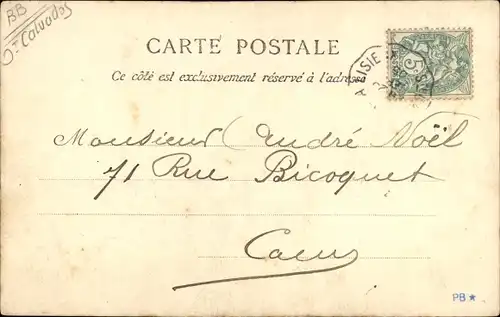 BB
Calvados
CARTE POSTALE
Ce côté est exclusivement réservé à l'adresse
5
Monsieur André Noël
71 Rue Bicoquet
Caen
PB ★